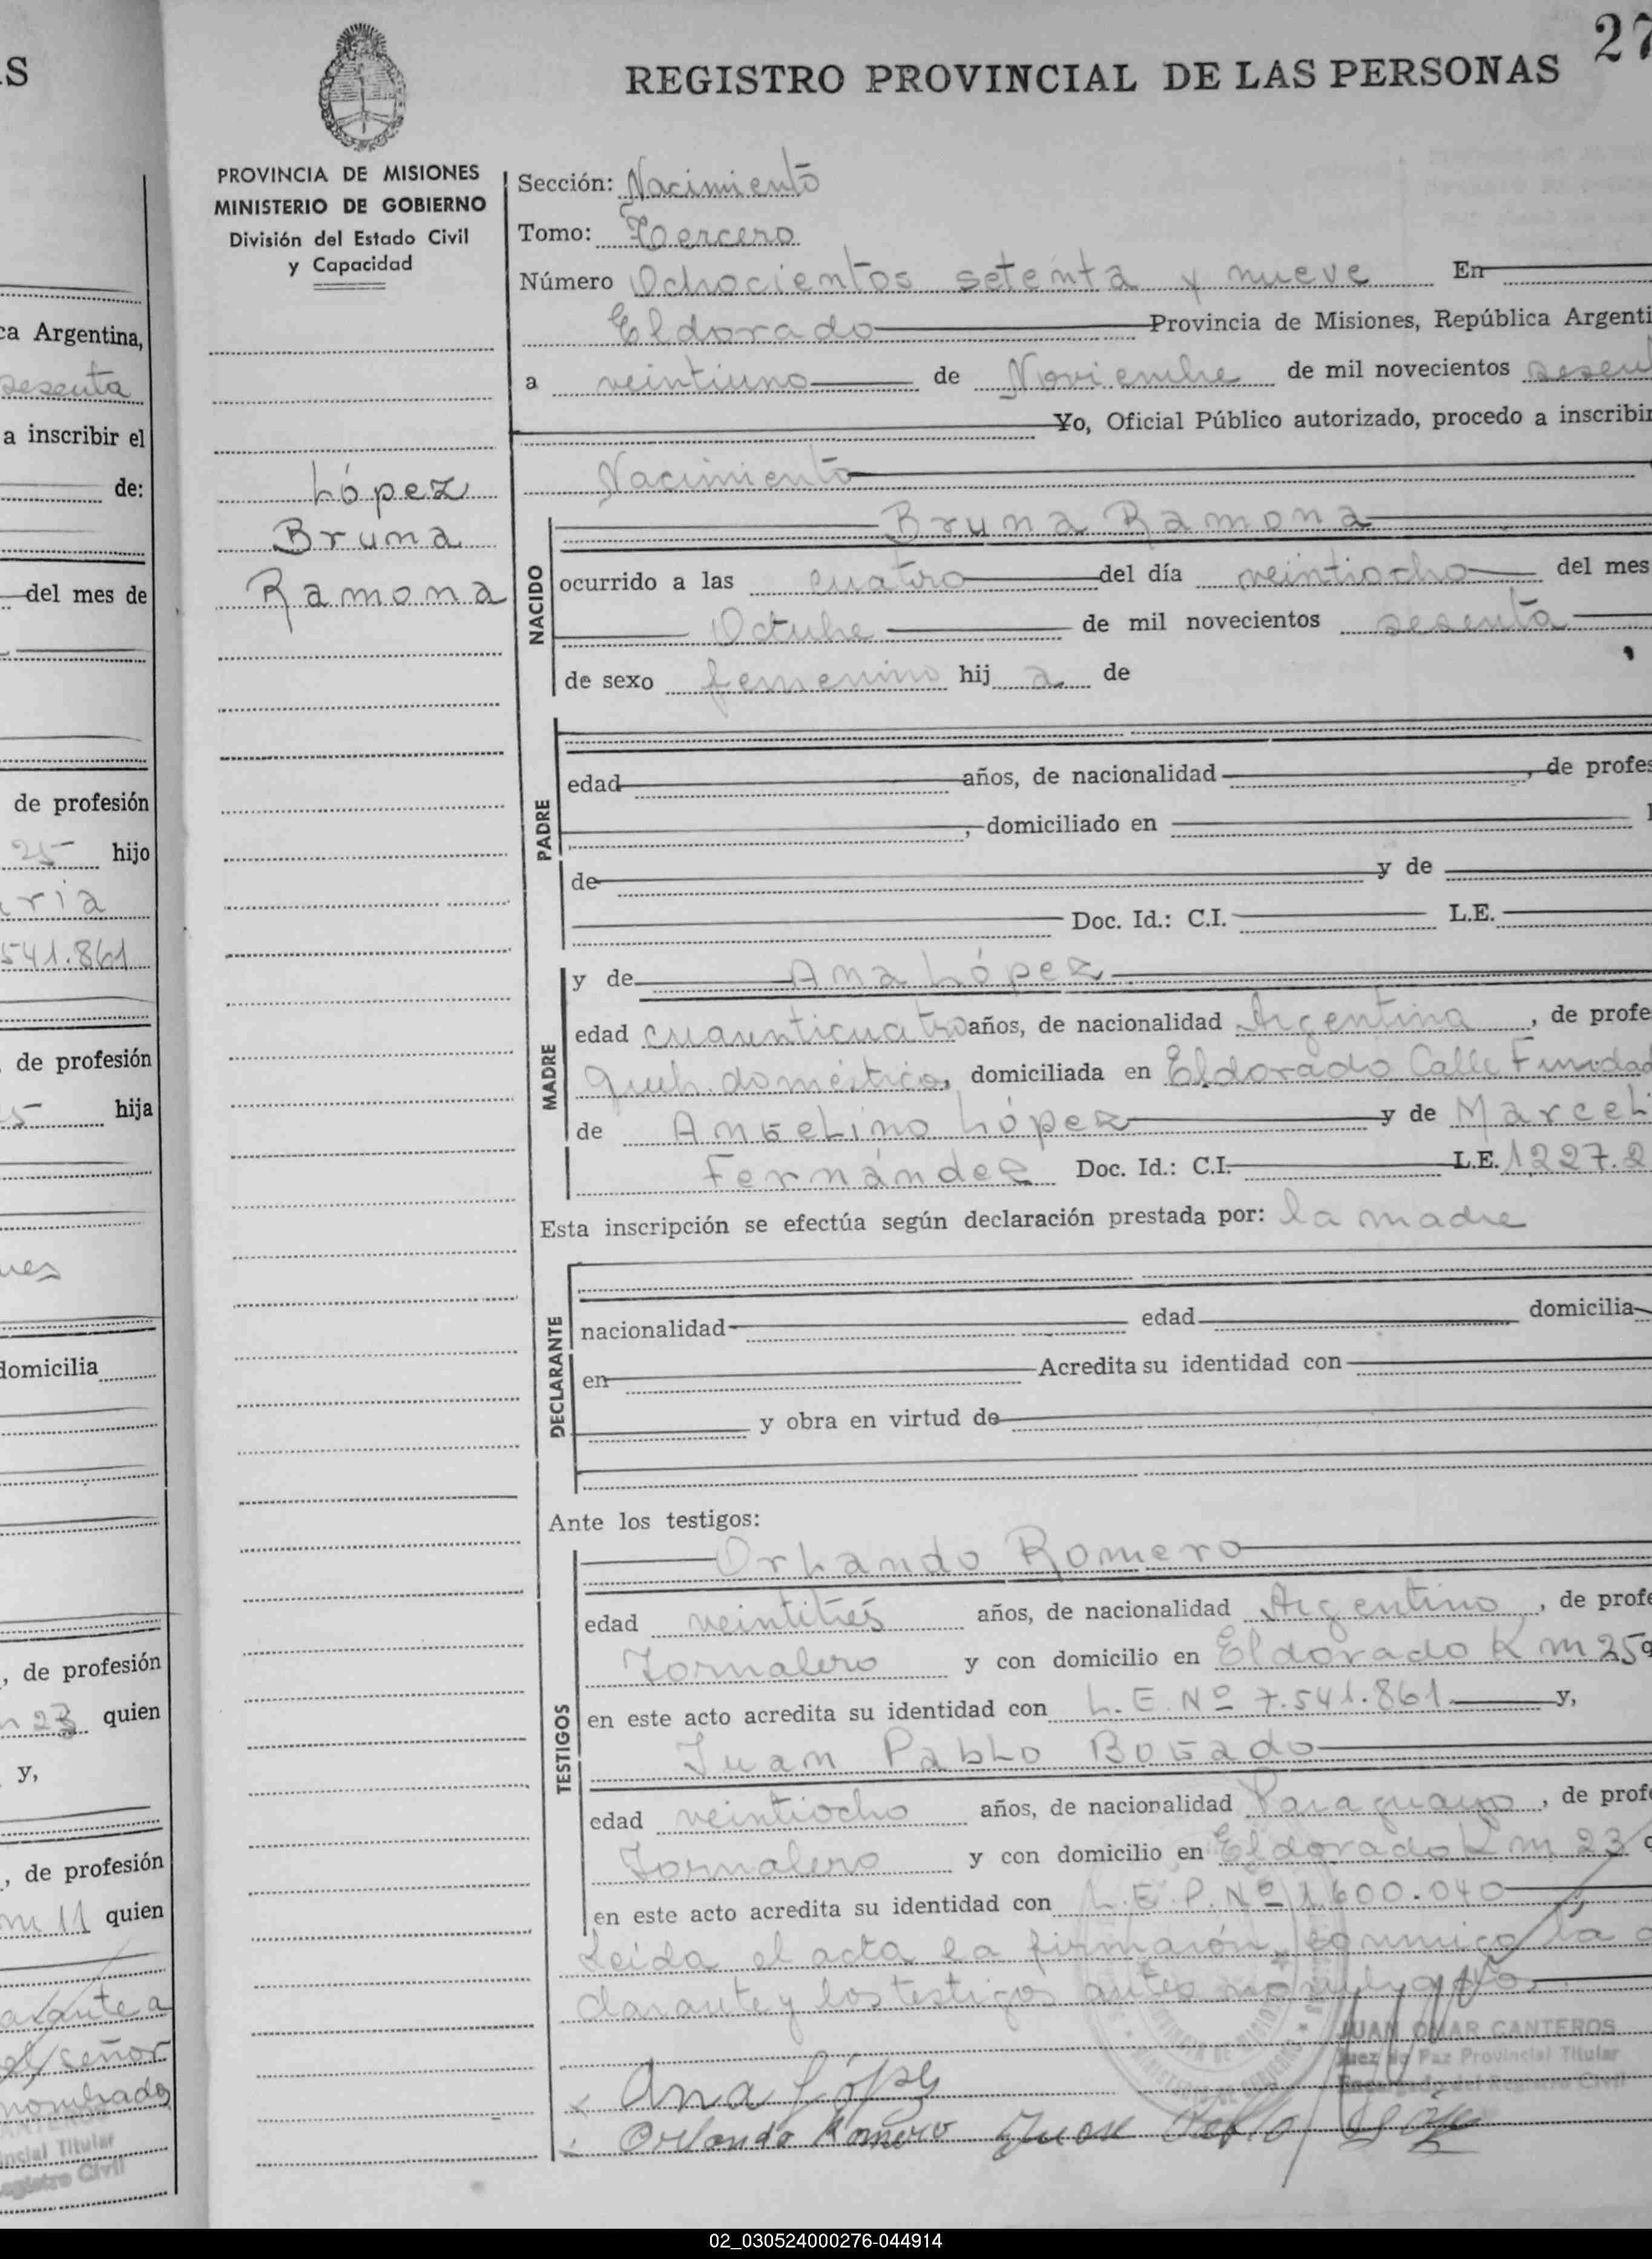 S
27
REGISTRO PROVINCIAL DE LAS PERSONAS
PROVINCIA DE MISIONES
MINISTERIO DE GOBIERNO
División del Estado Civil
y Capacidad
López
Bruna
Ramona
Sección: Nacimiento
Tomo: Tercero
Número Ochocientos setenta y nueve En
Eldorado Provincia de Misiones, República Argenti
a veintiuno de Noviembre de mil novecientos sesen
Yo, Oficial Público autorizado, procedo a inscribir
Nacimiento
NACIDO
Bruna Ramona
ocurrido a las cuatro del día veintiocho del mes
Octubre de mil novecientos sesenta
de sexo femenino hij a de
PADRE
edad años, de nacionalidad , de profes
, domiciliado en
de y de
Doc. Id.: C.I. L.E.
MADRE
y de Ana López
edad cuarenticuatro años, de nacionalidad Argentina, de profe
queh. doméstico, domiciliada en Eldorado Calle Fundad
de Angelino López y de Marceli
Fernández Doc. Id.: C.I. L.E. 1.227.2
Esta inscripción se efectúa según declaración prestada por: la madre
DECLARANTE
nacionalidad edad domicilia
en Acredita su identidad con
y obra en virtud de
Ante los testigos:
TESTIGOS
Orlando Romero
edad veintitrés años, de nacionalidad Argentino, de profe
Jornalero y con domicilio en Eldorado Km 25 q
en este acto acredita su identidad con L.E. Nº 7.541.861 y,
Juan Pablo Bogado
edad veintiocho años, de nacionalidad Paraguayo, de profe
Jornalero y con domicilio en Eldorado Km 23 q
en este acto acredita su identidad con L.E.P. Nº 1.600.040
Leída el acta la firmarón, conmigo la
clarante y los testigos antes
JUAN OMAR CANTEROS
Juez de Paz Provincial Titular
Encargado del Registro Civil
Ana López
Orlando Romero
ca Argentina,
sesenta
a inscribir el
de:
del mes de
de profesión
25 hijo
ria
541.861
, de profesión
5 hija
domicilia
, de profesión
m 23 quien
y,
, de profesión
m 11 quien
arante a
el señor
nombrados
incial Titular
egistro Civil
02_030524000276-044914